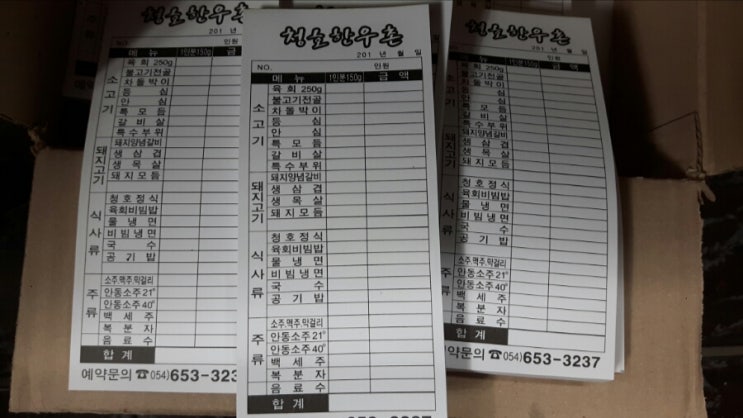 청호한우촌
201 년 월 일
NO. 인원
메뉴 1인분150g 금액
소고기
육회 250g
불고기전골
차돌박이
등심
안심
특모듬
갈비살
특수부위
돼지고기
돼지양념갈비
생삼겹
생목살
돼지모듬
식사류
청호정식
육회비빔밥
물냉면
비빔냉면
국수
공기밥
주류
소주.맥주.막걸리
안동소주21°
안동소주40°
백세주
복분자
음료수
합계
653-3237
청호한우촌
201 년 월 일
NO. 인원
메뉴 1인분150g 금
소고기
육회 250g
불고기전골
차돌박이
등심
안심
특모듬
갈비살
특수부위
돼지고기
돼지양념갈비
생삼겹
생목살
돼지모듬
식사류
청호정식
육회비빔밥
물냉면
비빔냉면
국수
공기밥
주류
소주.맥주.막걸리
안동소주21°
안동소주40°
백세주
복분자
음료수
합계
예약문의 ☎(054)653-323
청호한우촌
201 년 월 일
인원
메뉴 1인분150g 금액
육회 250g
불고기전골
차돌박이
등심
안심
특모듬
갈비살
특수부위
돼지양념갈비
생삼겹
생목살
돼지모듬
청호정식
육회비빔밥
물냉면
비빔냉면
국수
공기밥
소주.맥주.막걸리
안동소주21°
안동소주40°
백세주
복분자
음료수
합계
예약문의 ☎(054)653-3237